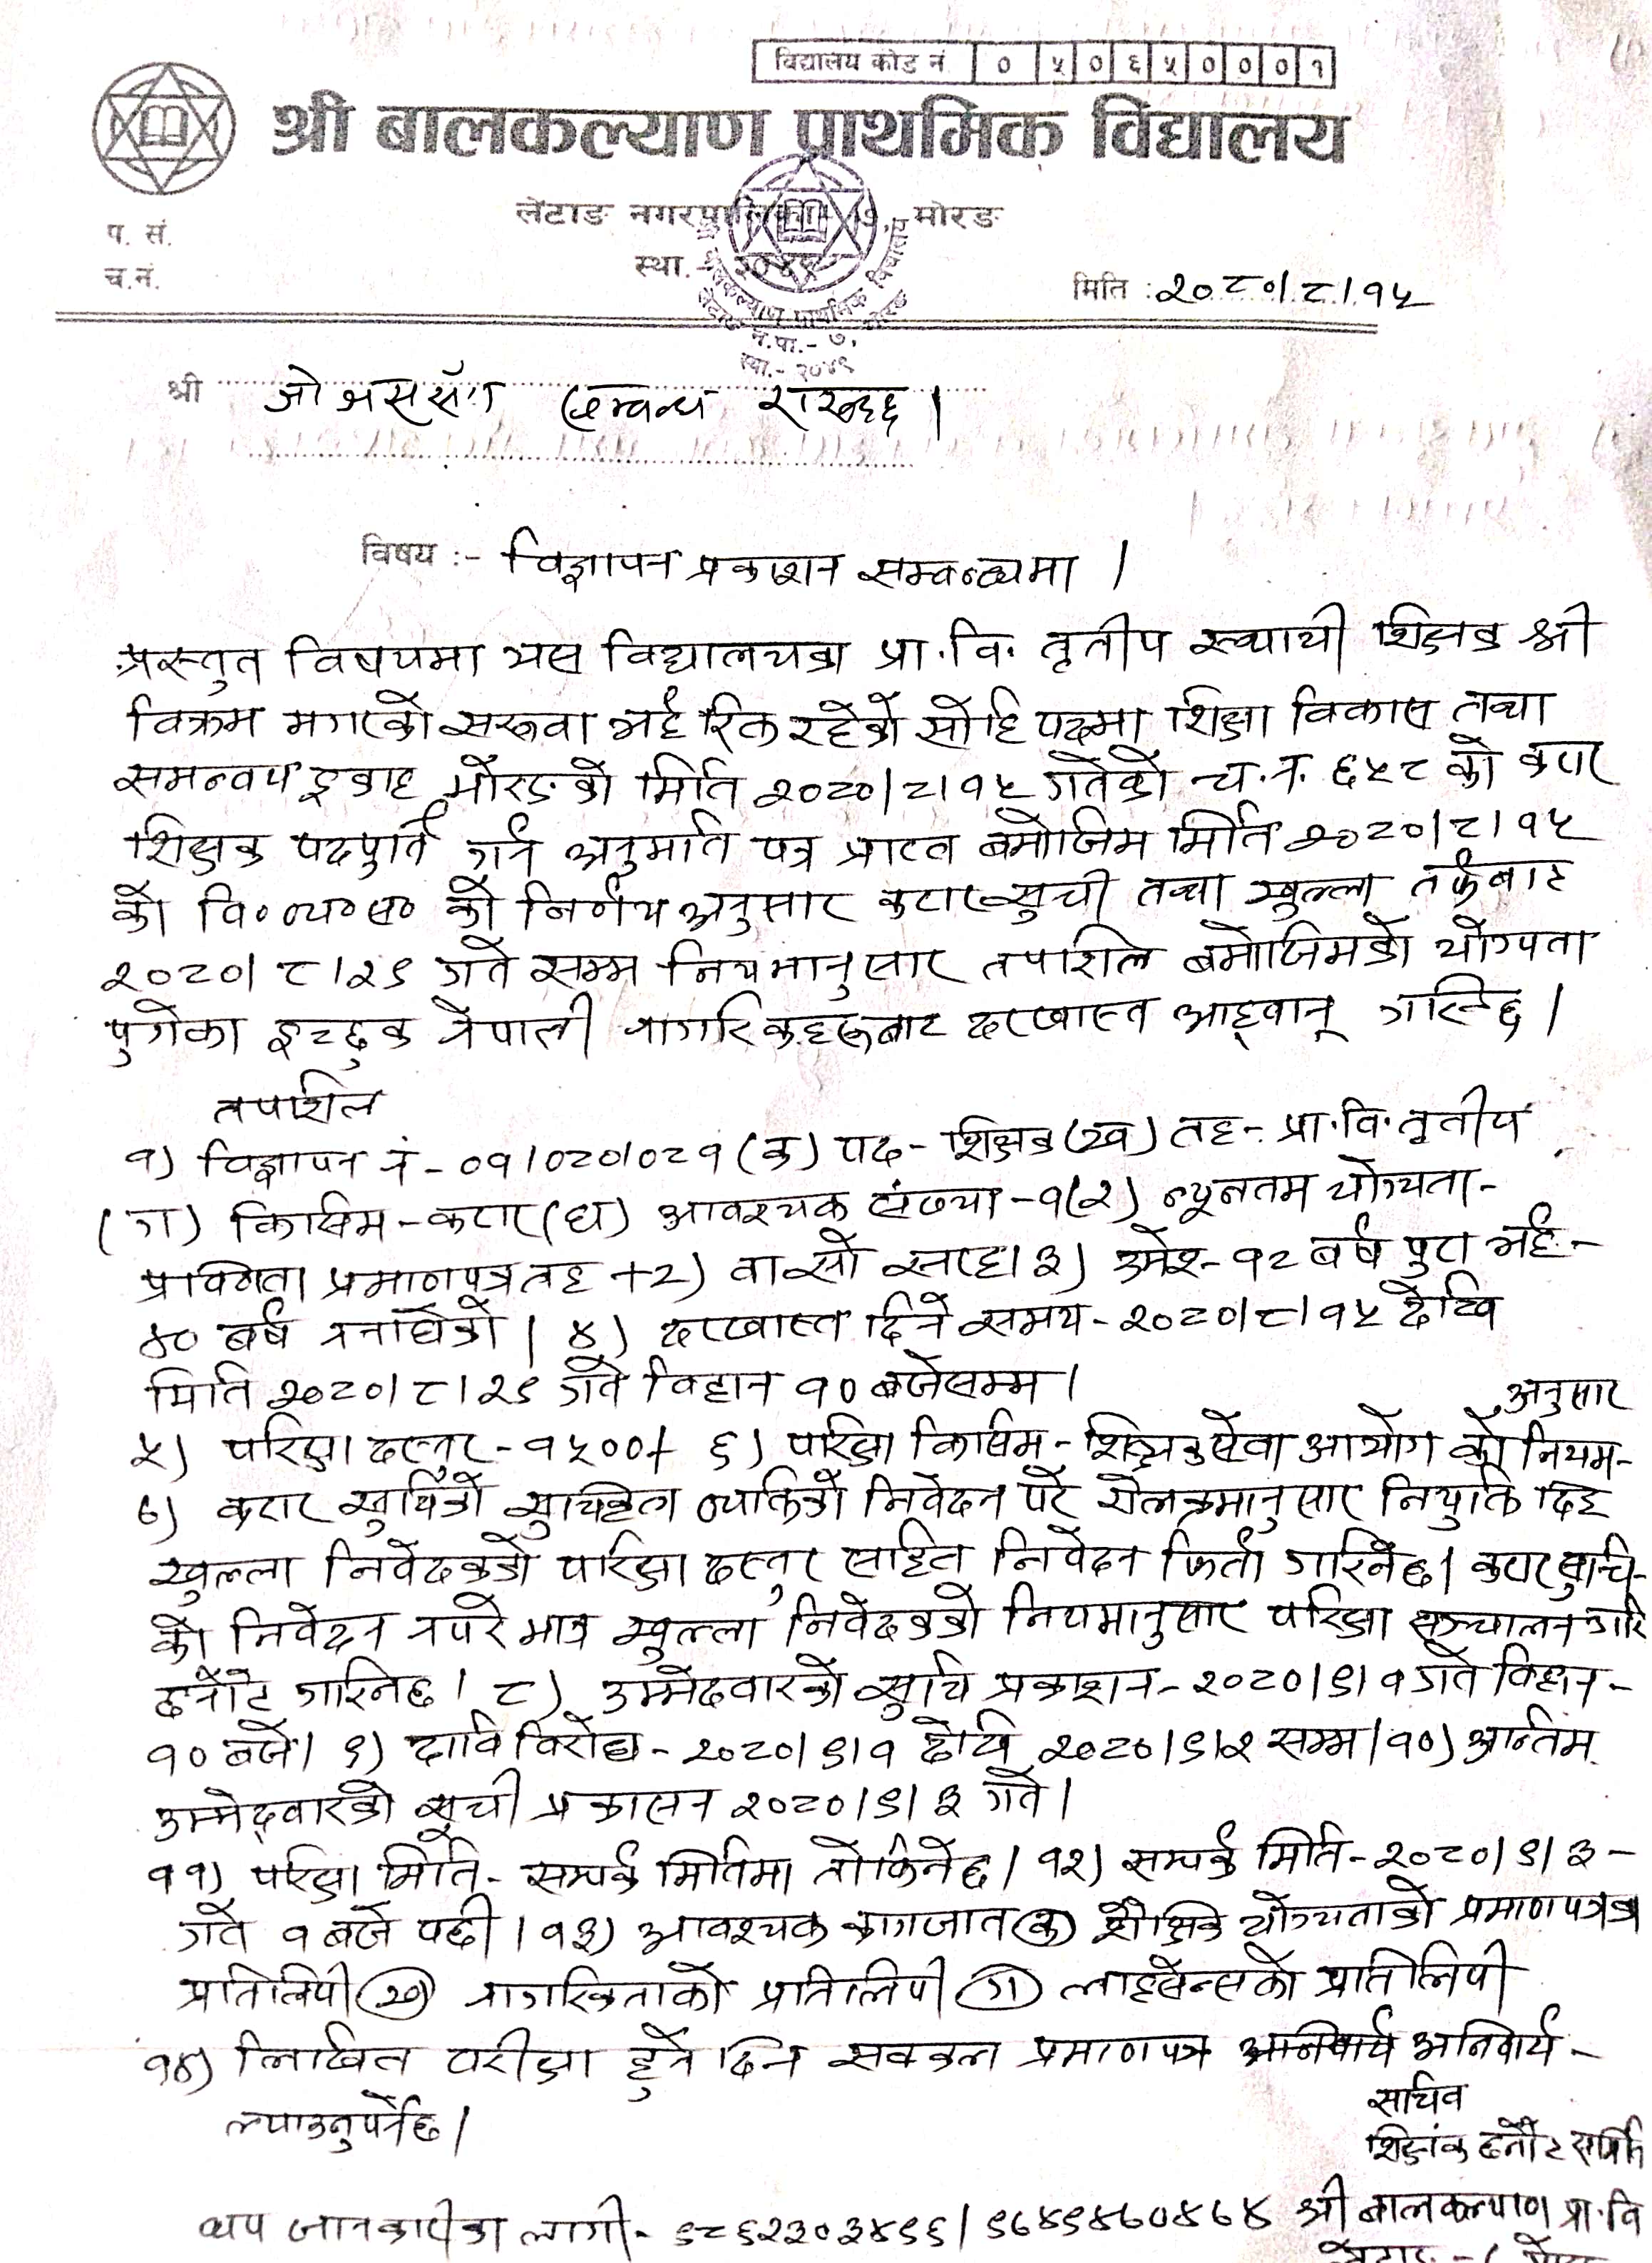 विद्यालय कोड नं ० ५ ० ६ ५ ० ० ० १
श्री बालकल्याण प्राथमिक विद्यालय
लेटाङ नगरपालिका - ७, मोरङ
प. सं.
स्था. - २०४९
च.नं.
मिति : २०८०/८/१५
बालकल्याण प्राथमिक विद्यालय
न.पा.- ७,
स्था.- २०४९
श्री जो जससँग सम्वन्ध राख्दछ ।
विषय :- विज्ञापन प्रकाशन सम्वन्धमा ।
प्रस्तुत विषयमा यस विद्यालयका प्रा.वि. तृतीय स्थायी शिक्षक श्री
विक्रम मगरको सरूवा भई रिक्त रहेको सोहि पदमा शिक्षा विकास तथा
समन्वय इकाइ मोरङको मिति २०८०/८/१५ गतेको च.नं. ६५८ को करार
शिक्षक पदपुर्ति गर्न अनुमति पत्र प्राप्त बमोजिम मिति २०८०/८/१५
को वि०व्य०स० को निर्णय अनुसार करार सुची तथा खुल्ला तर्फबाट
२०८०/८/२९ गते सम्म नियमानुसार तपशिल बमोजिमको योग्यता
पुगेका इच्छुक नेपाली नागरिकहरूबाट दरखास्त आह्वान् गरिन्छ ।
तपशिल
१) विज्ञापन नं - ०१/०८०/०८१ (क) पद - शिक्षक (ख) तह - प्रा.वि. तृतीय
(ग) किसिम - करार (घ) आवश्यक संख्या - १ (२) न्यूनतम योग्यता -
प्रविणता प्रमाणपत्र तह +२) वा सो सरह । ३) उमेर - १८ बर्ष पुरा भई -
४० बर्ष ननाघेको । ४) दरखास्त दिने समय - २०८०/८/१५ देखि
मिति २०८०/८/२९ गते विहान १० बजेसम्म ।
अनुसार
५) परिक्षा दस्तुर - १५००/- ६) परिक्षा किसिम - शिक्षक सेवा आयोग को नियम -
७) करार सुचिको सुचिकृत व्यक्तिको निवेदन परे रोलक्रमानुसार नियुक्ति दिइ
खुल्ला निवेदकको परिक्षा दस्तुर सहित निवेदन फिर्ता गरिनेछ । करार सुचि-
को निवेदन नपरे मात्र खुल्ला निवेदकको नियमानुसार परिक्षा सञ्चालन गरि
छनौट गरिनेछ । ८) उम्मेदवारको सुचि प्रकाशन - २०८०/९/१ गते विहान -
१० बजे । ९) दावि विरोध - २०८०/९/१ देखि २०८०/९/२ सम्म । १०) अन्तिम
उम्मेद्वारको सूची प्रकासन २०८०/९/३ गते ।
११) परिक्षा मिति - सम्पर्क मितिमा तोकिनेछ । १२) सम्पर्क मिति - २०८०/९/३ -
गते १ बजे पछी । १३) आवश्यक कागजात (क) शैक्षिक योग्यताको प्रमाणपत्रका
प्रतिलिपी (ख) नागरिकताको प्रतिलिपी (ग) लाइसेन्सको प्रतिलिपी
१४) लिखित परीक्षा हुने दिन सक्कल प्रमाणपत्र अनिवार्य -
ल्याउनुपर्नेछ ।
सचिव
शिक्षक छनौट समिति
थप जानकारीका लागी - ९८६२३०३४९६ / ९७४९४७०४७४ श्री बालकल्याण प्रा.वि